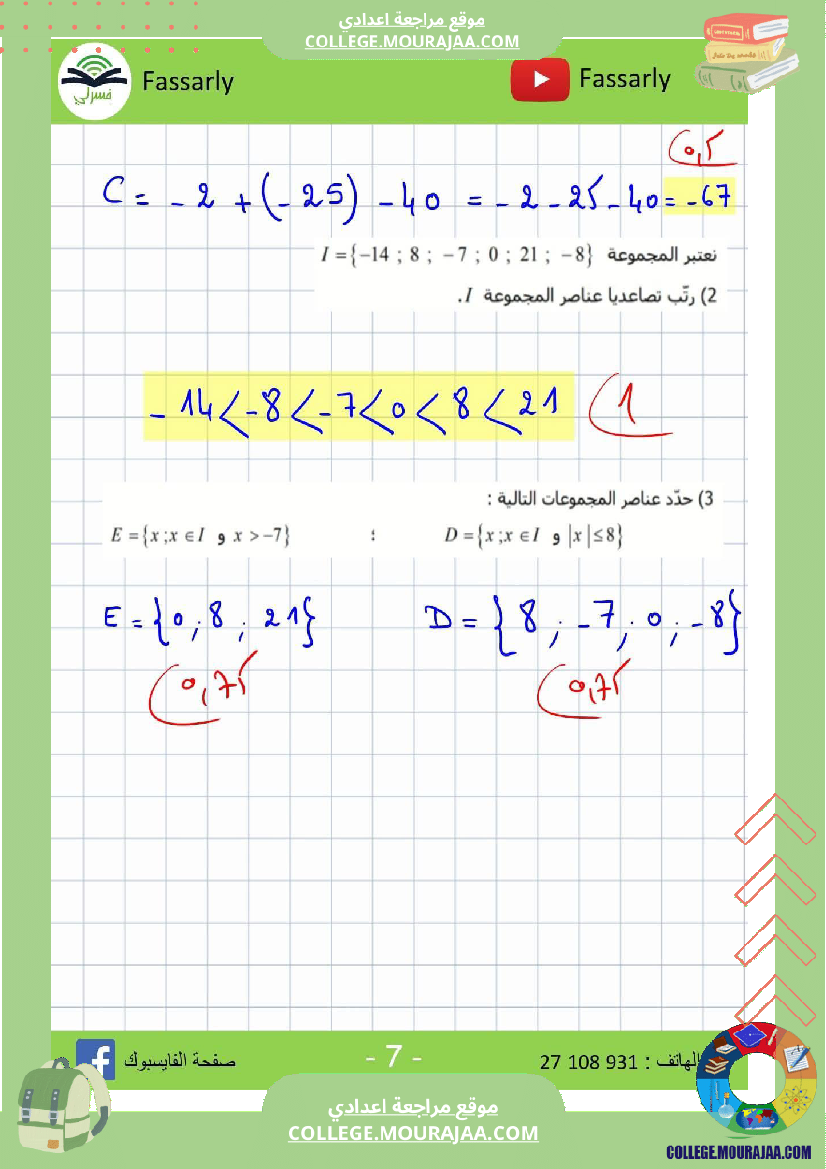 موقع مراجعة اعدادي
COLLEGE.MOURAJAA.COM
فسرلي Fassarly Fassarly
0,5
C = - 2 + (- 25) - 40 = - 2 - 25 - 40 = - 67
نعتبر المجموعة I = {-14 ; 8 ; -7 ; 0 ; 21 ; -8}
2) رتّب تصاعديا عناصر المجموعة I.
- 14 < - 8 < - 7 < 0 < 8 < 21
1
3) حدّد عناصر المجموعات التالية :
D = {x ; x ∈ I و |x| ≤ 8} ؛ E = {x ; x ∈ I و x > -7}
E = {0 ; 8 ; 21} D = {8 ; -7 ; 0 ; -8}
0,75 0,75
صفحة الفايسبوك - 7 - الهاتف : 27 108 931
موقع مراجعة اعدادي
COLLEGE.MOURAJAA.COM
COLLEGE.MOURAJAA.COM